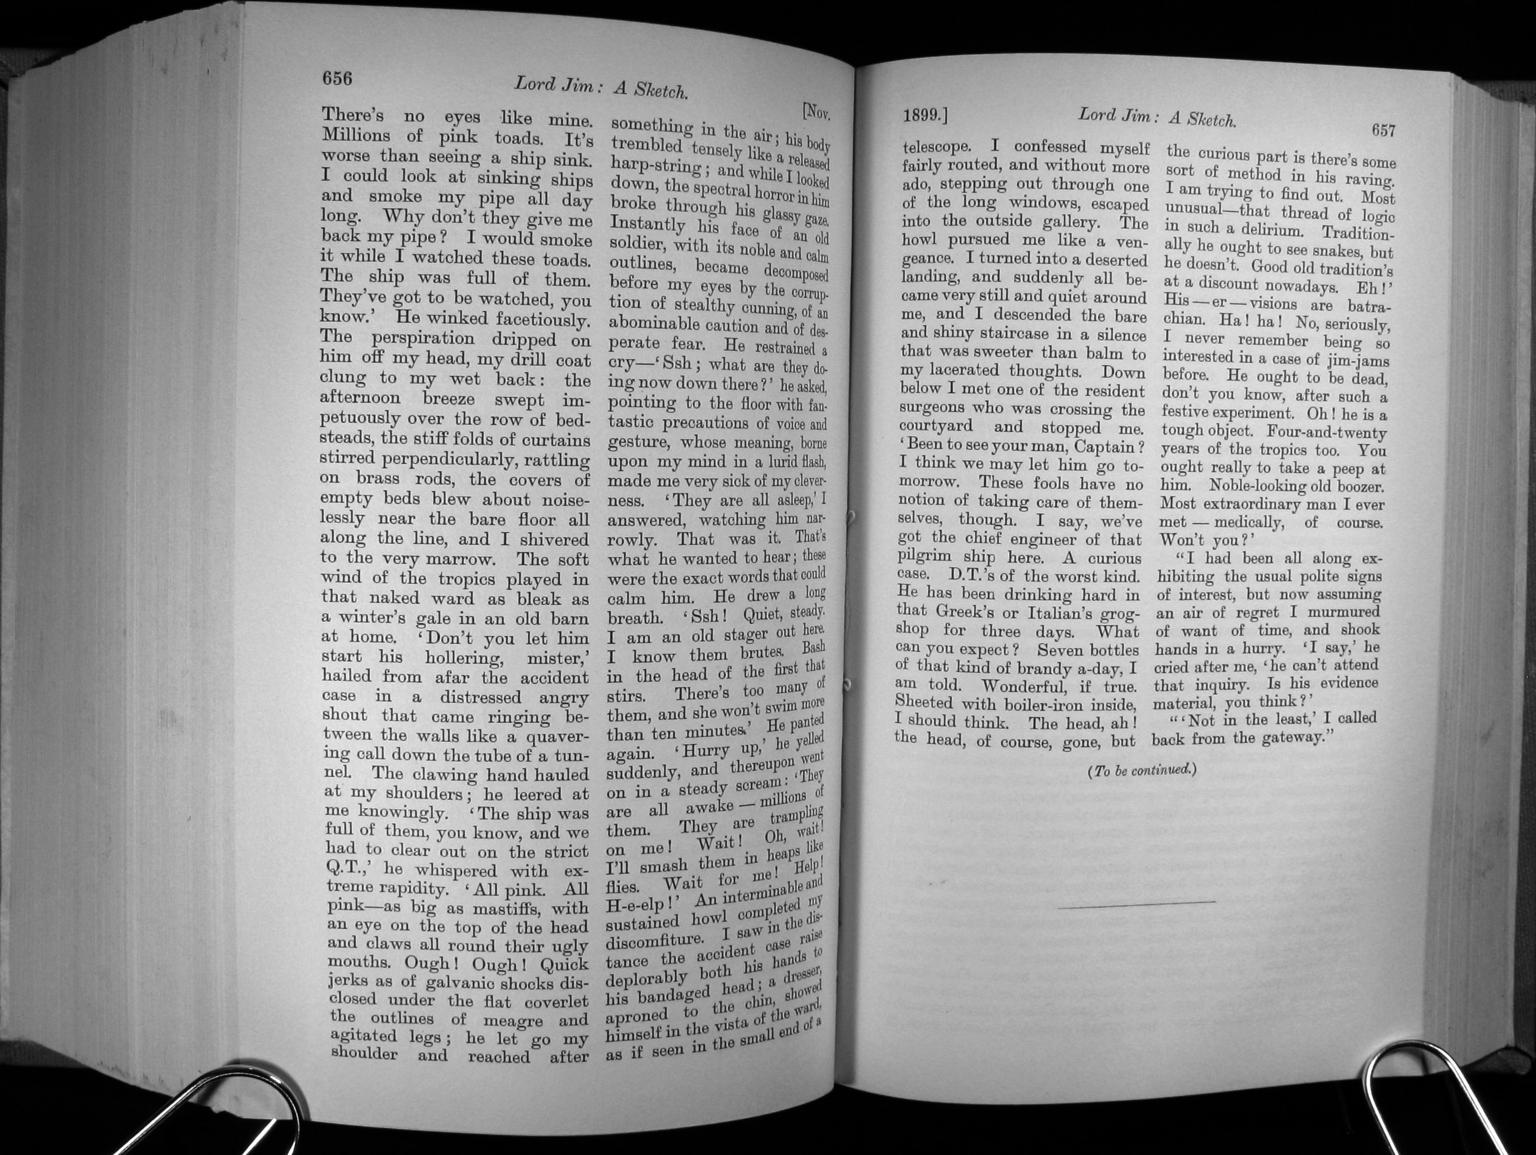 656
Lord Jim: A Sketch.
[Nov.
There's no eyes like mine.
Millions of pink toads. It's
worse than seeing a ship sink.
I could look at sinking ships
and smoke my pipe all day
long. Why don't they give me
back my pipe? I would smoke
it while I watched these toads.
The ship was full of them.
They've got to be watched, you
know.' He winked facetiously.
The perspiration dripped on
him off my head, my drill coat
clung to my wet back: the
afternoon breeze swept im-
petuously over the row of bed-
steads, the stiff folds of curtains
stirred perpendicularly, rattling
on brass rods, the covers of
empty beds blew about noise-
lessly near the bare floor all
along the line, and I shivered
to the very marrow. The soft
wind of the tropics played in
that naked ward as bleak as
a winter's gale in an old barn
at home. 'Don't you let him
start his hollering, mister,'
hailed from afar the accident
case in a distressed angry
shout that came ringing be-
tween the walls like a quaver-
ing call down the tube of a tun-
nel. The clawing hand hauled
at my shoulders; he leered at
me knowingly. 'The ship was
full of them, you know, and we
had to clear out on the strict
Q.T.,' he whispered with ex-
treme rapidity. 'All pink. All
pink—as big as mastiffs, with
an eye on the top of the head
and claws all round their ugly
mouths. Ough! Ough! Quick
jerks as of galvanic shocks dis-
closed under the flat coverlet
the outlines of meagre and
agitated legs; he let go my
shoulder and reached after
something in the air; his body
trembled tensely like a released
harp-string; and while I looked
down, the spectral horror in him
broke through his glassy gaze.
Instantly his face of an old
soldier, with its noble and calm
outlines, became decomposed
before my eyes by the corrup-
tion of stealthy cunning, of an
abominable caution and of des-
perate fear. He restrained a
cry—'Ssh; what are they do-
ing now down there?' he asked,
pointing to the floor with fan-
tastic precautions of voice and
gesture, whose meaning, borne
upon my mind in a lurid flash,
made me very sick of my clever-
ness. 'They are all asleep,' I
answered, watching him nar-
rowly. That was it. That's
what he wanted to hear; these
were the exact words that could
calm him. He drew a long
breath. 'Ssh! Quiet, steady.
I am an old stager out here.
I know them brutes. Bash
in the head of the first that
stirs. There's too many of
them, and she won't swim more
than ten minutes.' He panted
again. 'Hurry up,' he yelled
suddenly, and thereupon went
on in a steady scream: 'They
are all awake — millions of
them. They are trampling
on me! Wait! Oh, wait!
I'll smash them in heaps like
flies. Wait for me! Help!
H-e-elp!' An interminable and
sustained howl completed my
discomfiture. I saw in the dis-
tance the accident case raise
deplorably both his hands to
his bandaged head; a dresser,
aproned to the chin, showed
himself in the vista of the ward,
as if seen in the small end of a
1899.]
Lord Jim: A Sketch.
657
telescope. I confessed myself
fairly routed, and without more
ado, stepping out through one
of the long windows, escaped
into the outside gallery. The
howl pursued me like a ven-
geance. I turned into a deserted
landing, and suddenly all be-
came very still and quiet around
me, and I descended the bare
and shiny staircase in a silence
that was sweeter than balm to
my lacerated thoughts. Down
below I met one of the resident
surgeons who was crossing the
courtyard and stopped me.
'Been to see your man, Captain?
I think we may let him go to-
morrow. These fools have no
notion of taking care of them-
selves, though. I say, we've
got the chief engineer of that
pilgrim ship here. A curious
case. D.T.'s of the worst kind.
He has been drinking hard in
that Greek's or Italian's grog-
shop for three days. What
can you expect? Seven bottles
of that kind of brandy a-day, I
am told. Wonderful, if true.
Sheeted with boiler-iron inside,
I should think. The head, ah!
the head, of course, gone, but
the curious part is there's some
sort of method in his raving.
I am trying to find out. Most
unusual—that thread of logic
in such a delirium. Tradition-
ally he ought to see snakes, but
he doesn't. Good old tradition's
at a discount nowadays. Eh!'
His — er — visions are batra-
chian. Ha! ha! No, seriously,
I never remember being so
interested in a case of jim-jams
before. He ought to be dead,
don't you know, after such a
festive experiment. Oh! he is a
tough object. Four-and-twenty
years of the tropics too. You
ought really to take a peep at
him. Noble-looking old boozer.
Most extraordinary man I ever
met — medically, of course.
Won't you?'
"I had been all along ex-
hibiting the usual polite signs
of interest, but now assuming
an air of regret I murmured
of want of time, and shook
hands in a hurry. 'I say,' he
cried after me, 'he can't attend
that inquiry. Is his evidence
material, you think?'
"'Not in the least,' I called
back from the gateway."
(To be continued.)